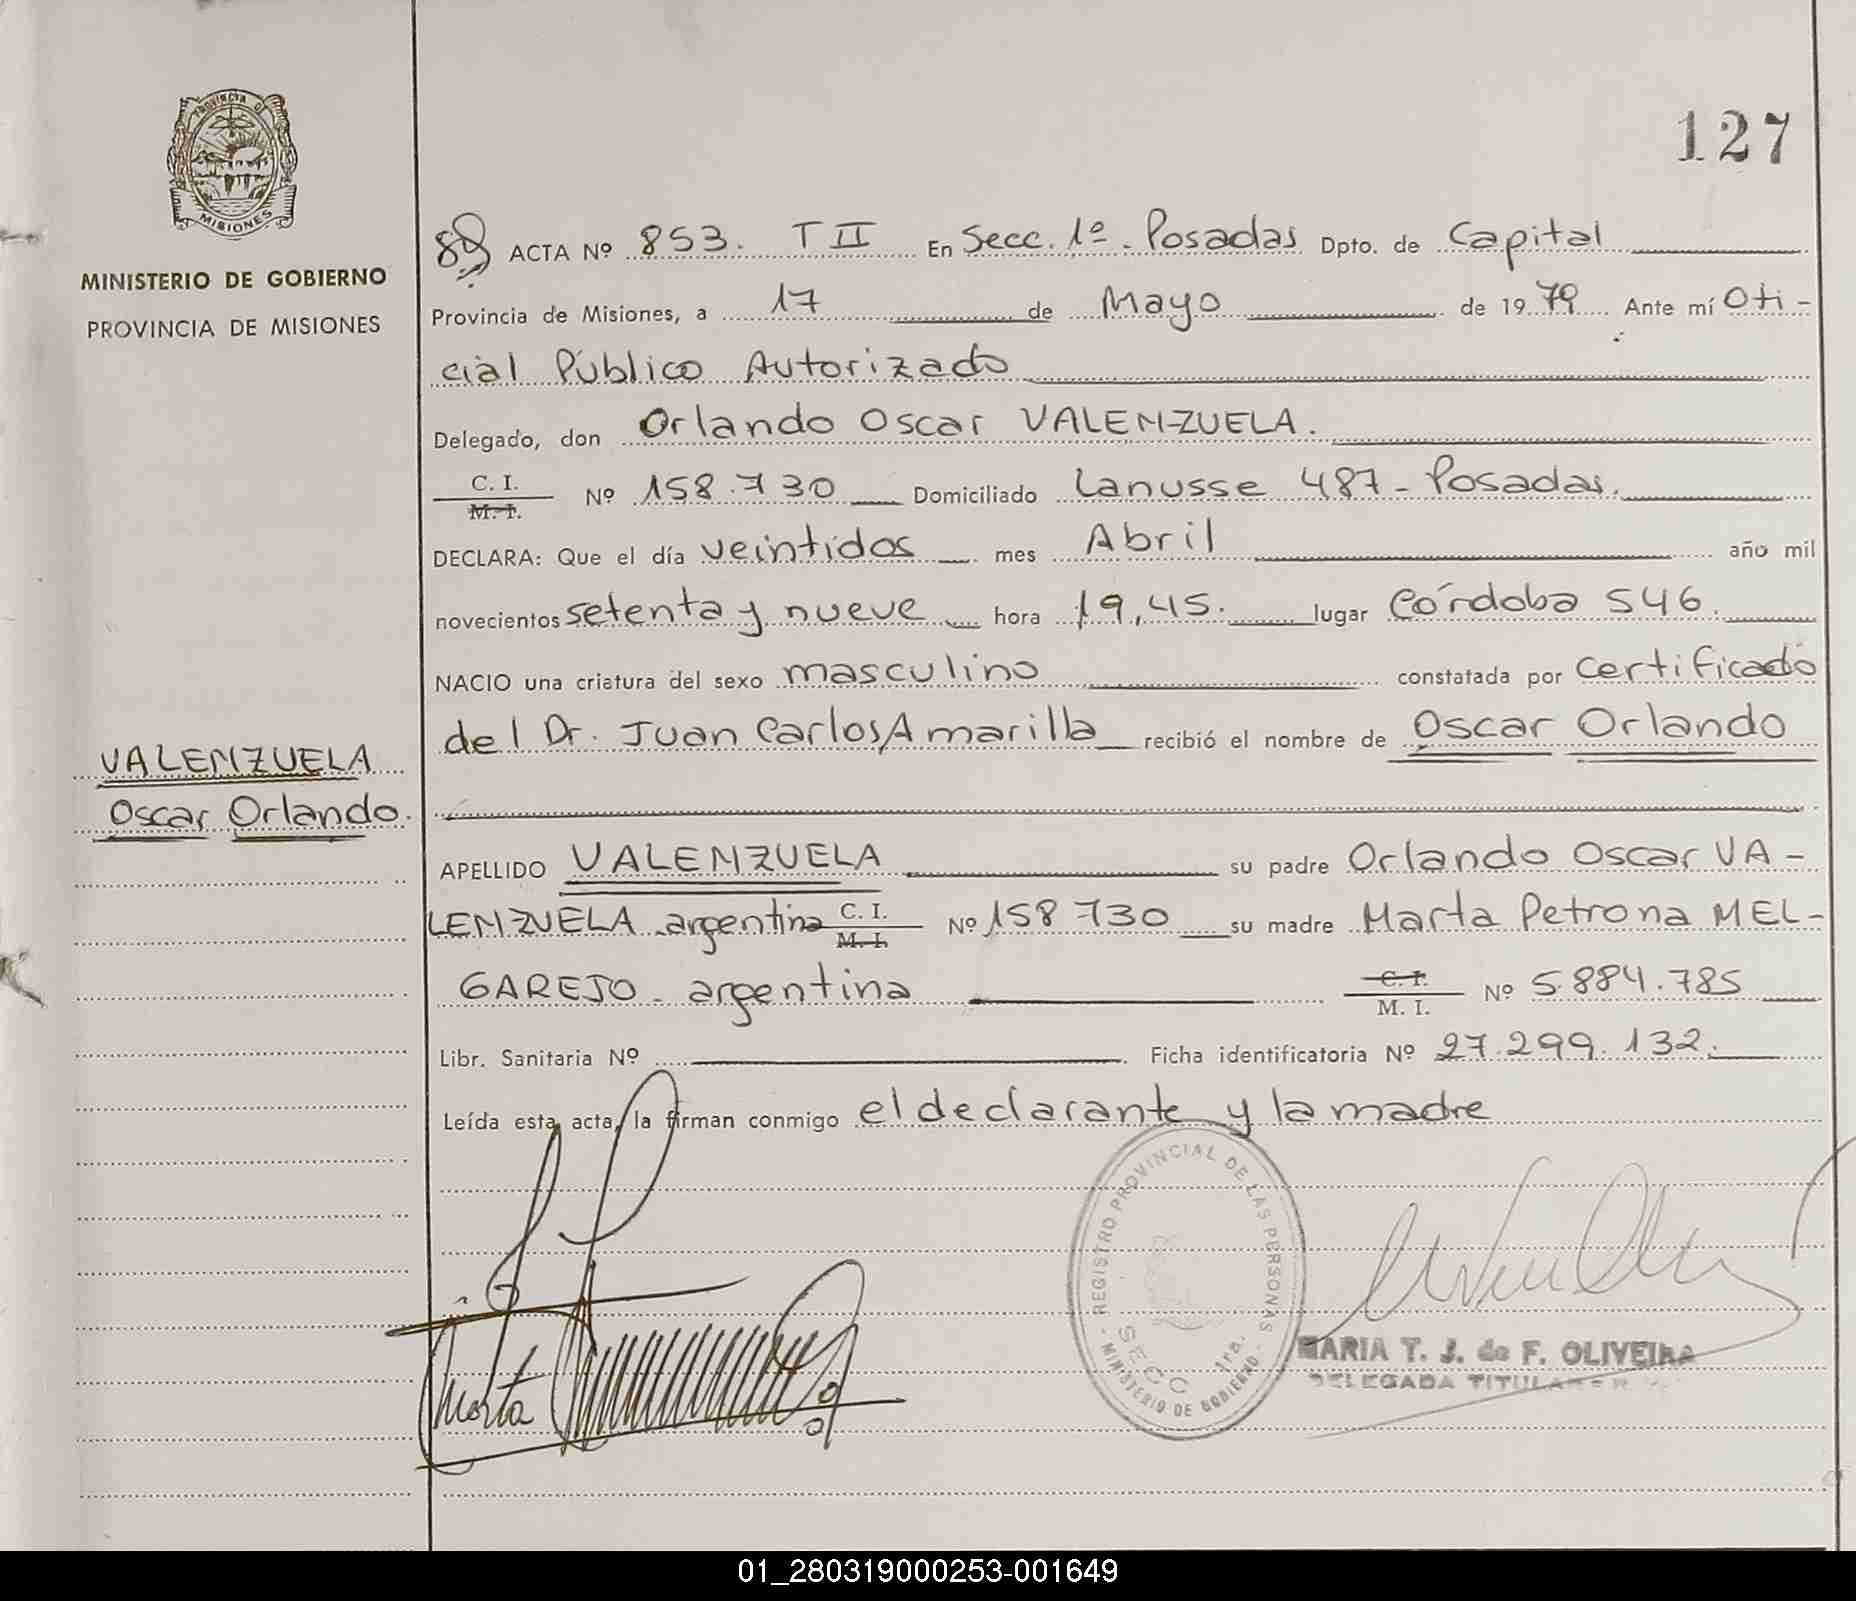 PROVINCIA DE
MISIONES
MINISTERIO DE GOBIERNO
PROVINCIA DE MISIONES
VALENZUELA
Oscar Orlando.
127
89 ACTA Nº 853. T II En Secc. 1º. Posadas Dpto. de Capital
Provincia de Misiones, a 17 de Mayo de 1979 Ante mí Ofi-
cial Público Autorizado
Delegado, don Orlando Oscar VALENZUELA.
C. I.
M. I. Nº 158.730 Domiciliado Lanusse 487 - Posadas.
DECLARA: Que el día veintidos mes Abril año mil
novecientos setenta y nueve hora 19,45. lugar Córdoba 546.
NACIO una criatura del sexo masculino constatada por certificado
del Dr. Juan Carlos Amarilla recibió el nombre de Oscar Orlando
APELLIDO VALENZUELA su padre Orlando Oscar VA-
LENZUELA argentina C. I. M. I. Nº 158 730 su madre Marta Petrona MEL-
GAREJO - argentina C. I. M. I. Nº 5.884.785
Libr. Sanitaria Nº Ficha identificatoria Nº 27.299.132.
Leída esta acta, la firman conmigo el declarante y la madre
REGISTRO PROVINCIAL DE LAS PERSONAS
SECC 1ra.
MINISTERIO DE GOBIERNO
MARIA T. J. de F. OLIVEIRA
DELEGADA TITULAR
Marta
01_280319000253-001649